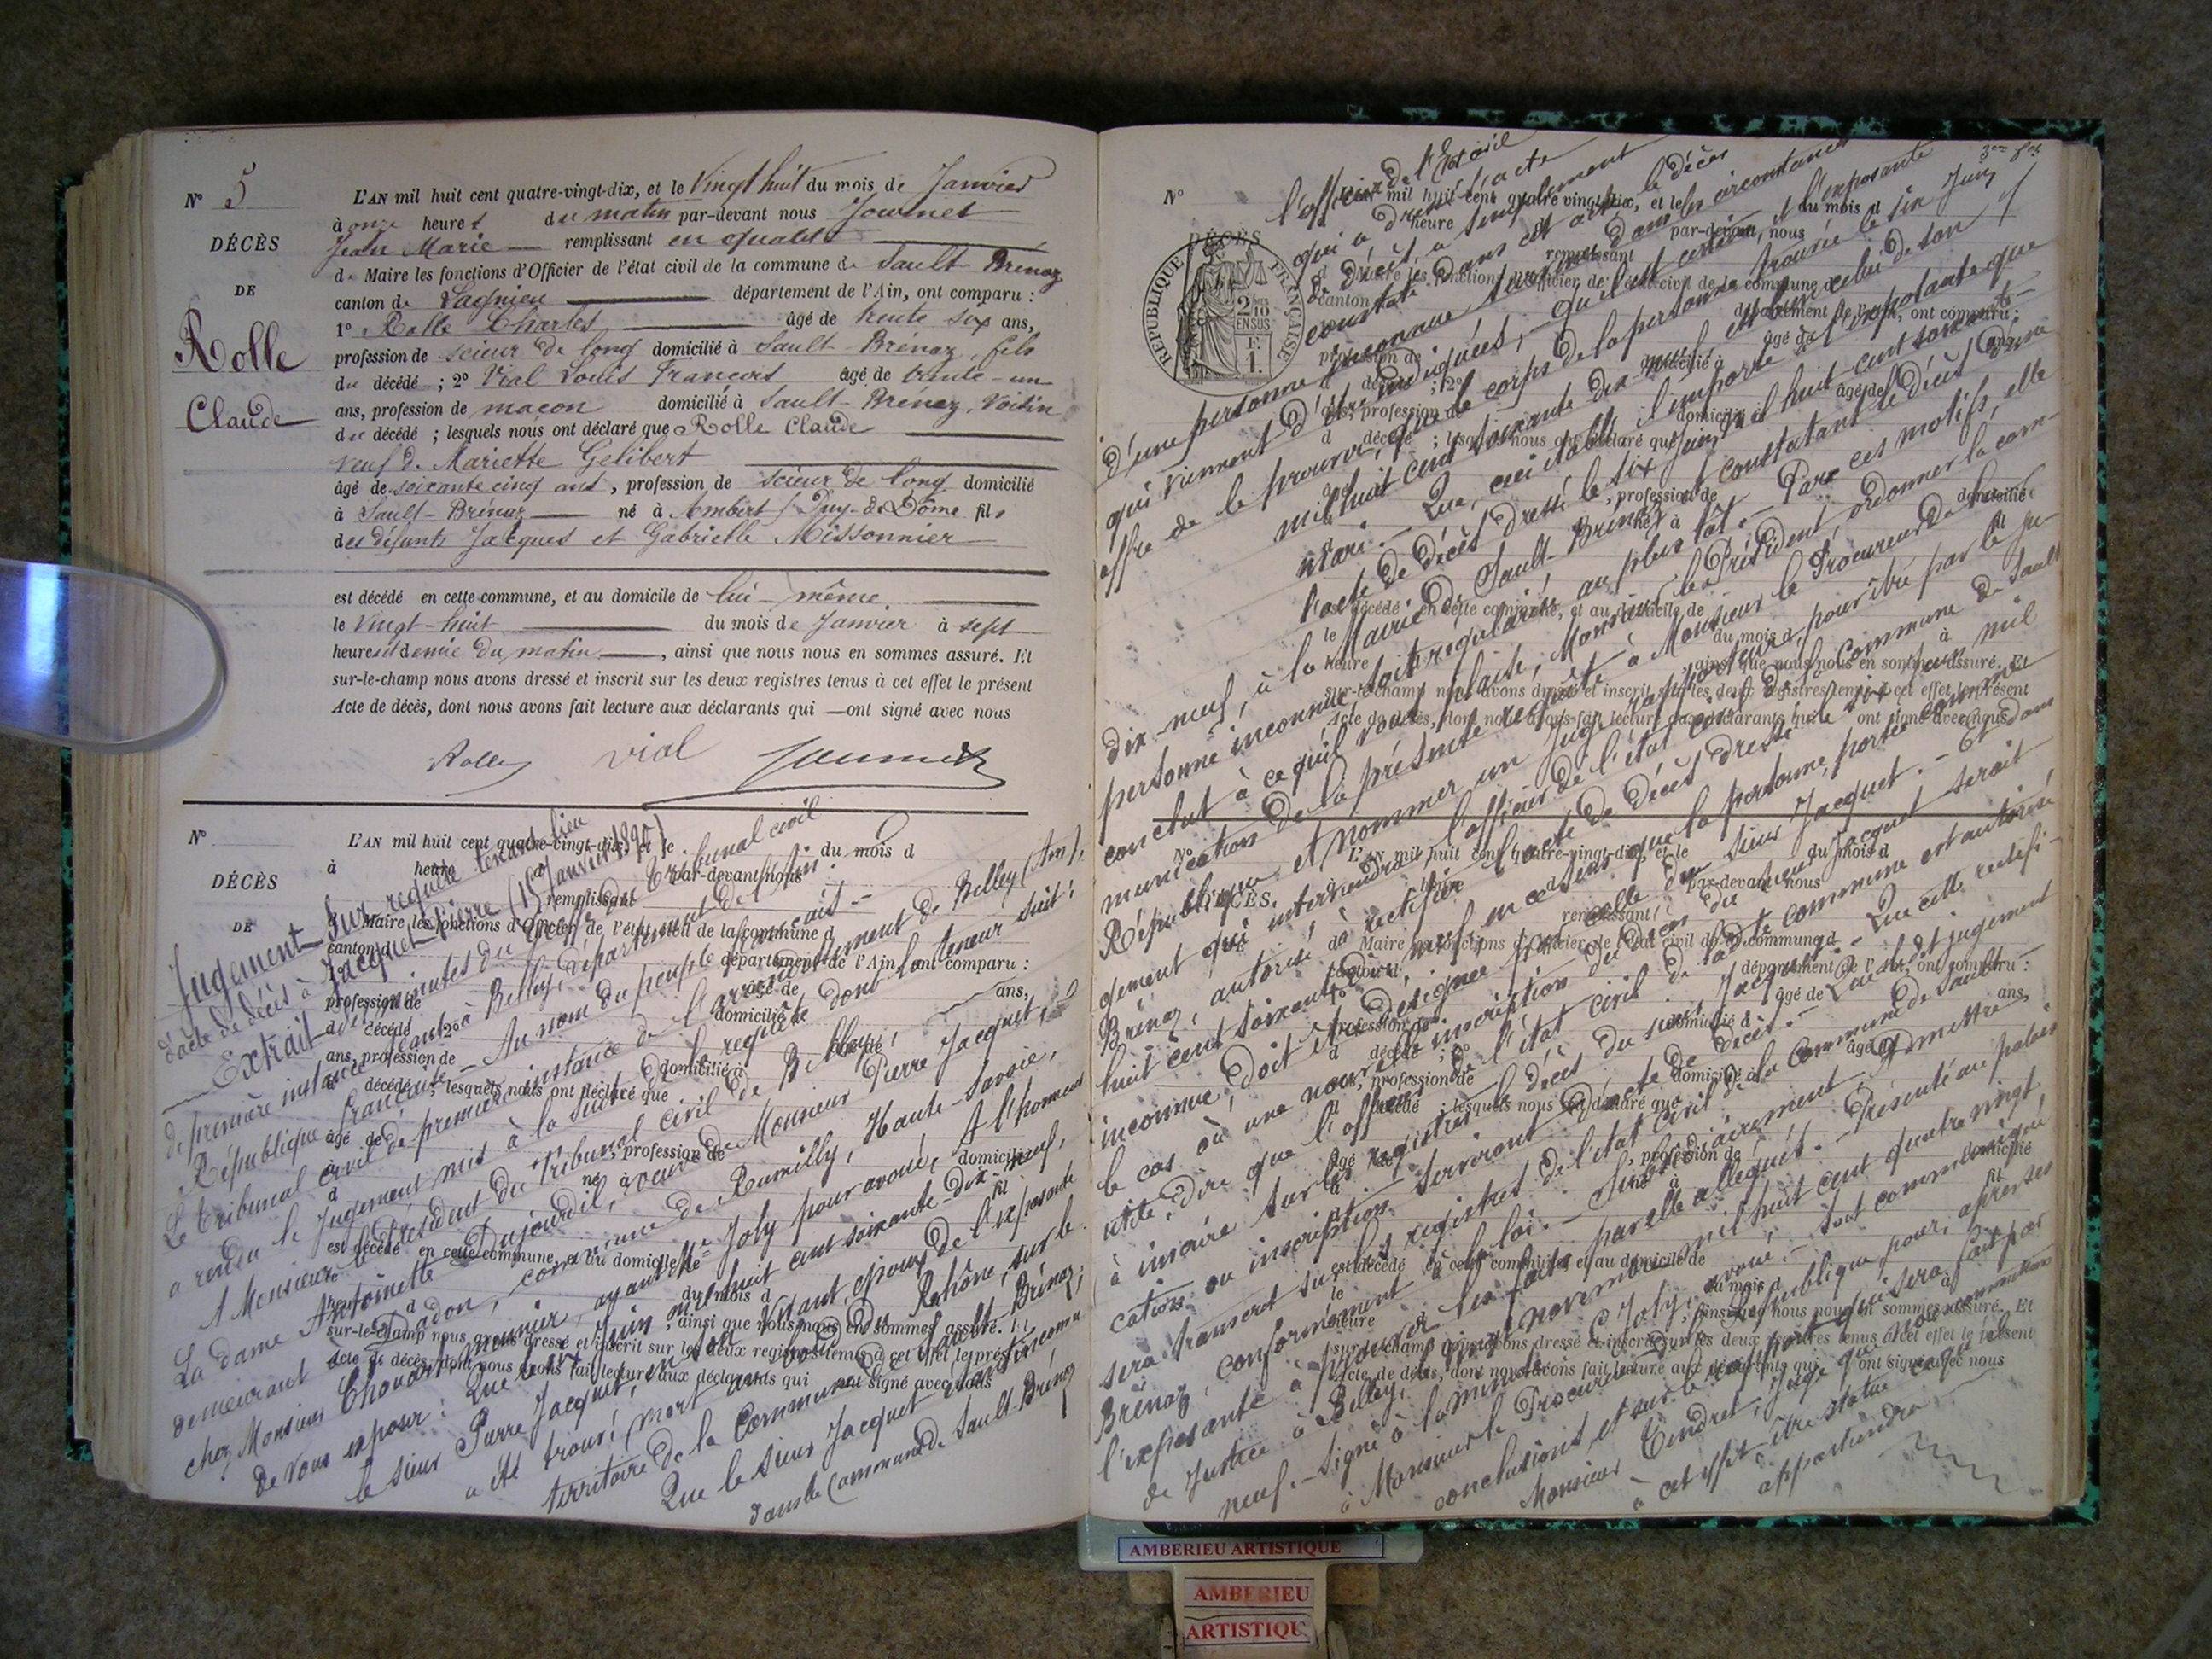 N° 5
DÉCÈS
DE
Rolle
Claude
L'AN mil huit cent quatre-vingt-dix, et le Vingt huit du mois de Janvier
à onze heures du matin par-devant nous Journet
Jean Marie remplissant en qualité
de Maire les fonctions d'Officier de l'état civil de la commune de Sault Brénaz
canton de Lagnieu département de l'Ain, ont comparu :
1° Rolle Charles âgé de trente six ans,
profession de scieur de long domicilié à Sault-Brénaz, fils
du décédé ; 2° Vial Louis François âgé de trente-un
ans, profession de maçon domicilié à Sault-Brénaz, Voisin
du décédé ; lesquels nous ont déclaré que Rolle Claude
veuf de Mariette Gelibert
âgé de soixante cinq ans, profession de scieur de long domicilié
à Sault-Brénaz né à Ambert (Puy-de-Dôme fils
des défunts Jacques et Gabrielle Missonnier
est décédé en cette commune, et au domicile de lui-même
le Vingt-huit du mois de Janvier à sept
heures et demie du matin, ainsi que nous nous en sommes assuré. Et
sur-le-champ nous avons dressé et inscrit sur les deux registres tenus à cet effet le présent
Acte de décès, dont nous avons fait lecture aux déclarants qui ont signé avec nous
Rolle Vial Journet
N°
DÉCÈS
DE
L'AN mil huit cent quatre-vingt-dix, et le du mois d
Jugement sur requête tenant lieu
d'acte de décès à Jacquet Pierre (15 Janvier 1890)
Extrait des minutes du greffe du Tribunal civil
de première instance séant à Belley, département de l'Ain.
République française - Au nom du peuple français -
Le Tribunal civil de première instance de l'arrondissement de Belley (Ain),
a rendu le Jugement mis à la suite de la requête dont la teneur suit :
A Monsieur le Président du Tribunal civil de Belley,
La dame Antoinette Dujourdil, veuve de Monsieur Pierre Jacquet,
demeurant à Dadon, commune de Rumilly, Haute-Savoie,
chez Monsieur Chouart meunier, ayant Me Joly pour avoué, A l'honneur
de vous exposer : Que le six Juin mil huit cent soixante-dix-neuf,
le sieur Pierre Jacquet, en son vivant, époux de l'exposante
a été trouvé mort au bord du Rhône, sur le
territoire de la Commune de Sault-Brénaz ;
Que le sieur Jacquet était inconnu
dans la Commune de Sault-Brénaz,
3me fet
N°
DÉCÈS
RÉPUBLIQUE FRANÇAISE
2/10 EN SUS
F.
1.
l'officier de l'Etat civil
qui a dressé l'acte
de décès, a simplement
constaté dans cet acte le décès
d'une personne inconnue survenu dans les circonstances
qui viennent d'être indiquées, - qu'il est certain et l'exposante
offre de le prouver, que le corps de la personne trouvée le six Juin
mil huit cent soixante dix-neuf est bien celui de son
mari. - Que, ceci établi il importe à l'exposante que
l'acte de décès dressé le six Juin mil huit-cent soixante-
dix-neuf, à la Mairie de Sault-Brénaz et constatant le décès d'une
personne inconnue, soit régularisé au plus tôt. - Par ces motifs, elle
conclut à ce qu'il vous plaise, Monsieur le Président, ordonner la com-
munication de la présente requête à Monsieur le Procureur de la
République, et nommer un Juge rapporteur, pour être par le Ju-
gement qui interviendra l'officier de l'état civil de la Commune de Sault
Brénaz, autorisé à rectifier l'acte de décès dressé le six Juin mil
huit cent soixante dix neuf, en ce sens que la personne, portée comme
inconnue, doit être désignée pour celle du sieur Jacquet. - Et dans
le cas où une nouvelle inscription du décès du sieur Jacquet serait
utile, dire que l'officier de l'état civil de ladite commune est autorisé
à inscrire sur les registres le décès du sieur Jacquet. - Que cette rectifi-
cation ou inscription serviront d'acte de décès. - Que ledit jugement
sera transcrit sur les registres de l'état civil de la Commune de Sault-
Brénaz, conformément à la loi. - Subsidiairement Admettre
l'exposante à prouver les faits par elle allégués. - Présenté au palais
de Justice à Belley, le vingt novembre mil huit cent quatre vingt
neuf. - Signé à la minute C. Joly, avoué. - Soit communiqué
à Monsieur le Procureur de la République pour, après ses
conclusions et sur le rapport qui sera fait par
Monsieur Tendret, Juge que nous commettons
à cet effet être statué ce qu'il
appartiendra.
AMBERIEU ARTISTIQUE
AMBERIEU
ARTISTIQU